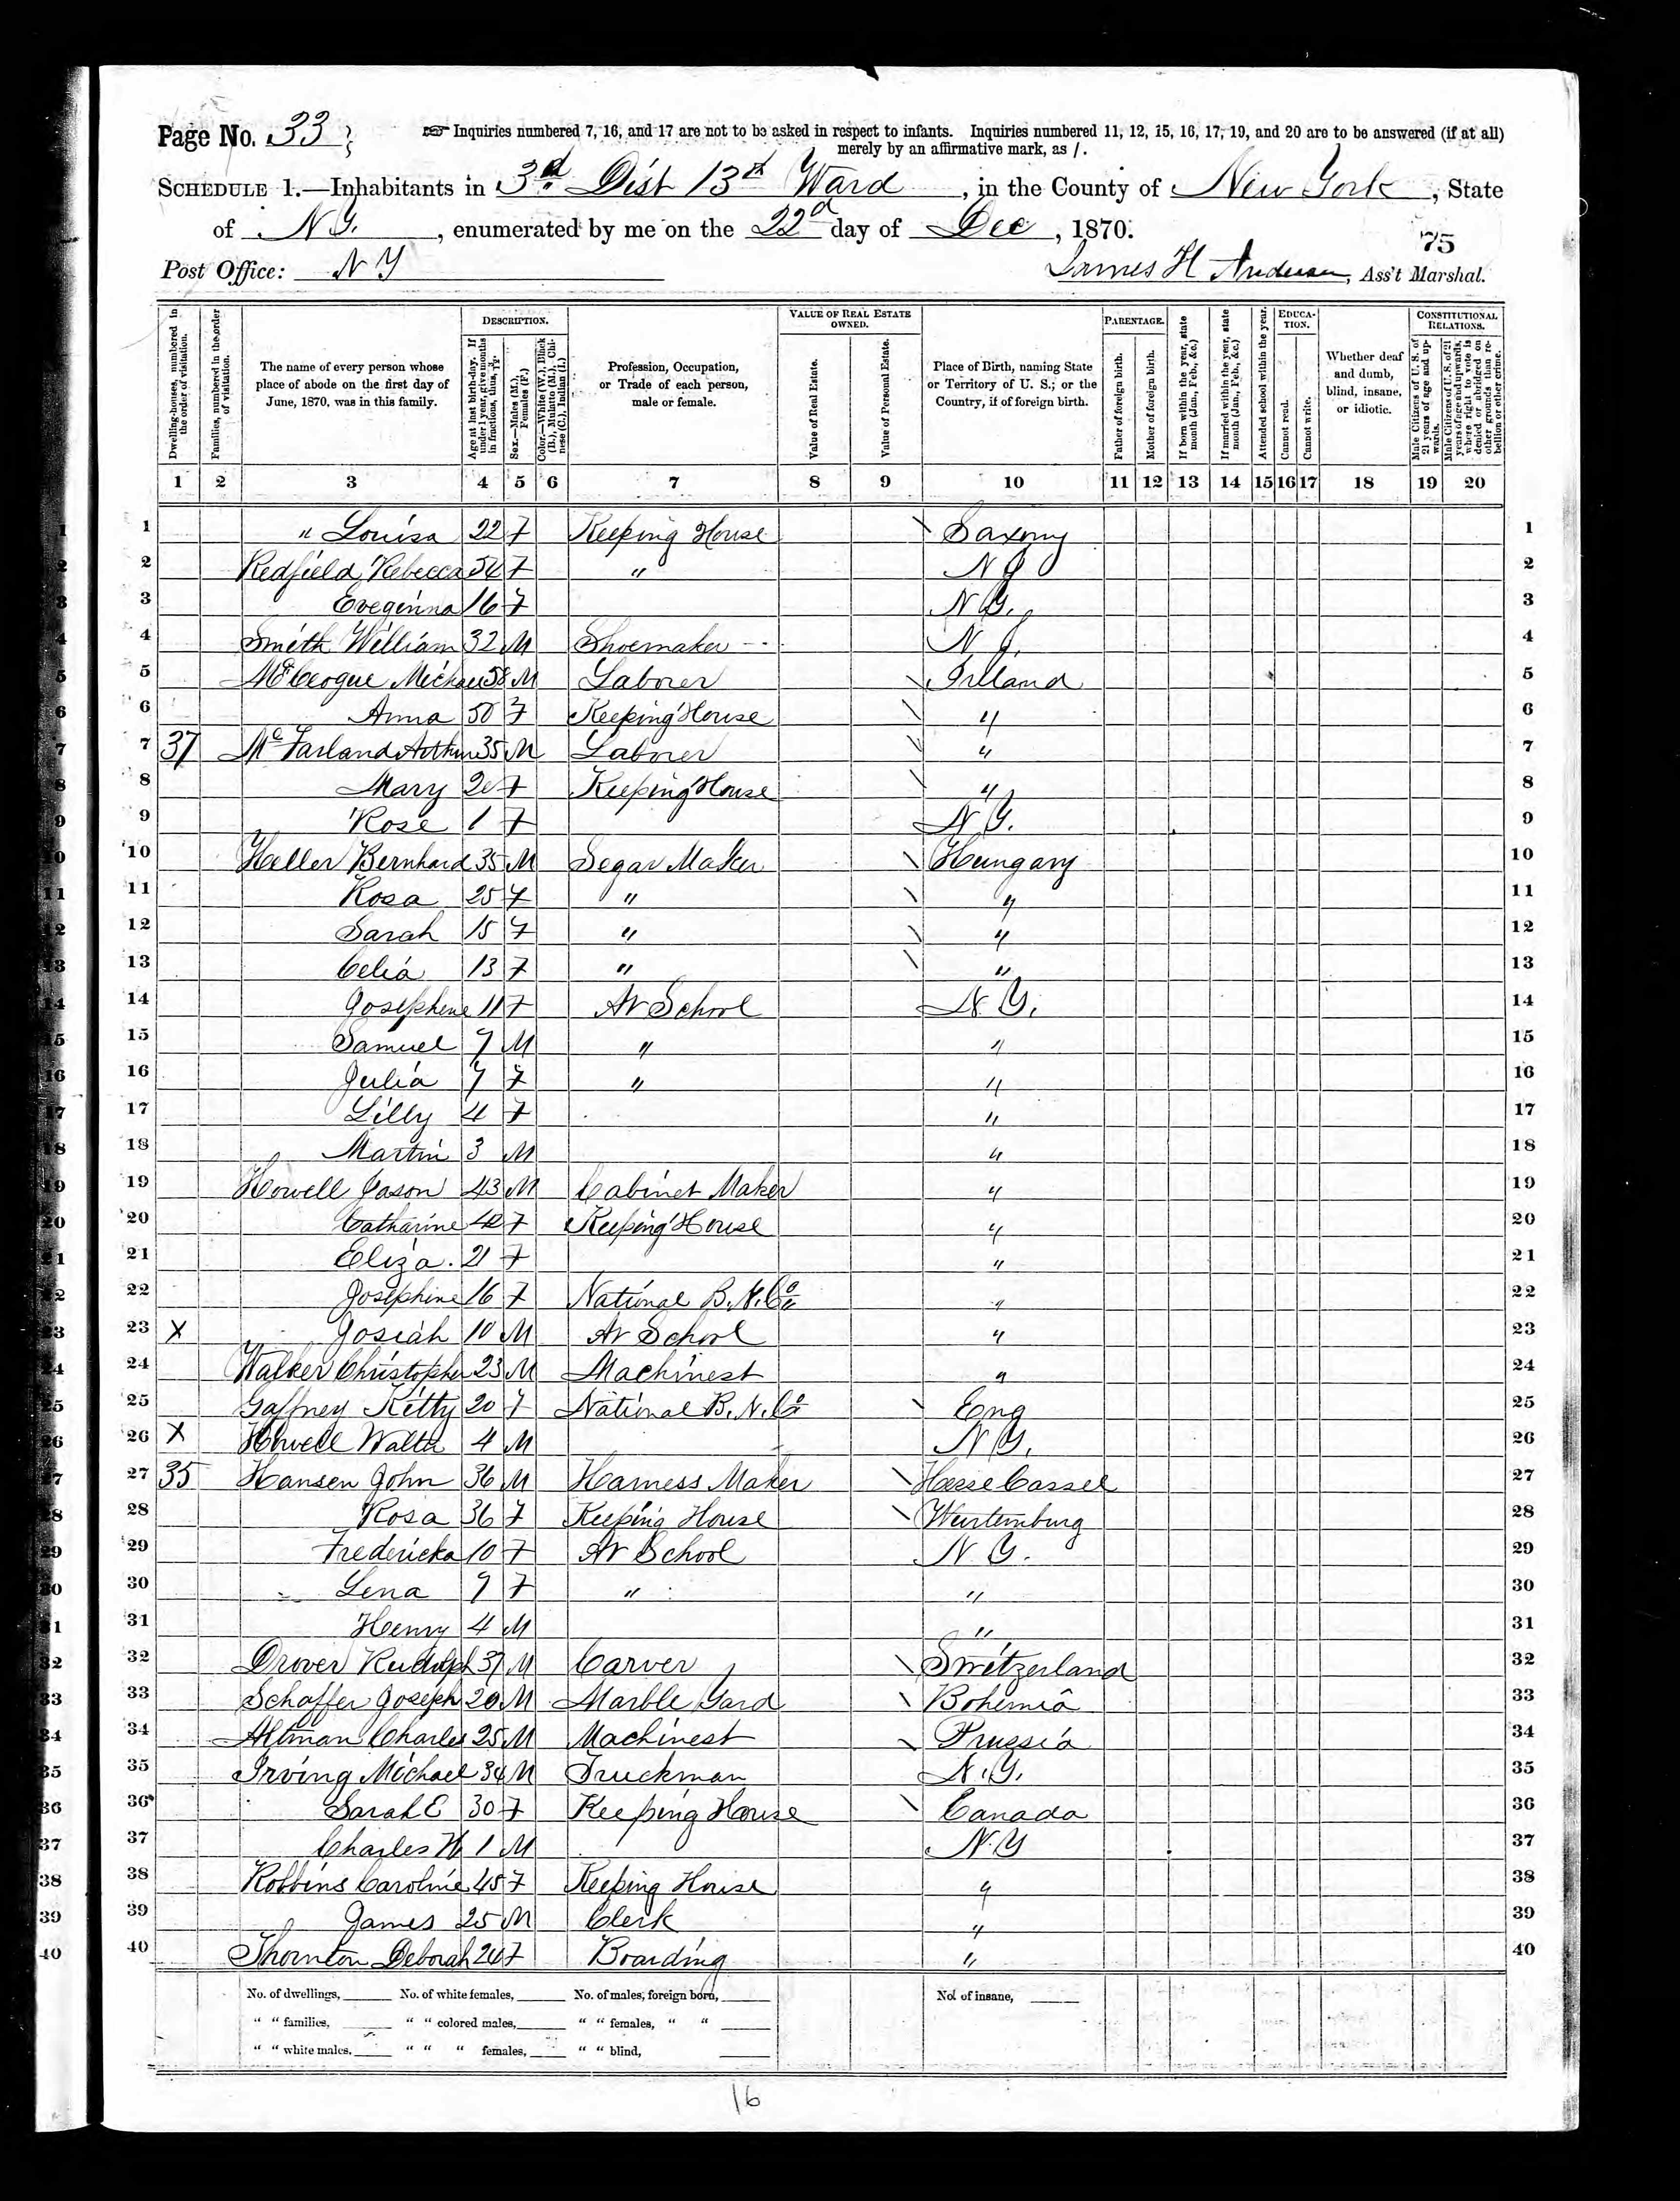 Page No. 33
Inquiries numbered 7, 16, and 17 are not to be asked in respect to infants. Inquiries numbered 11, 12, 15, 16, 17, 19, and 20 are to be answered (if at all)
merely by an affirmative mark, as /.
SCHEDULE 1.—Inhabitants in 3d. Dist 13th Ward, in the County of New York, State
of N Y., enumerated by me on the 22d day of Dec, 1870.
75
Post Office: N Y James H Anderson, Ass't Marshal.
Dwelling-houses, numbered in the order of visitation.
Families, numbered in the order of visitation.
The name of every person whose place of abode on the first day of June, 1870, was in this family.
DESCRIPTION.
Age at last birth-day. If under 1 year, give months in fractions, thus,
Sex.—Males (M.), Females (F.)
Color.—White (W.), Black (B.), Mulatto (M.), Chinese (C.), Indian (I.)
Profession, Occupation, or Trade of each person, male or female.
VALUE OF REAL ESTATE OWNED.
Value of Real Estate.
Value of Personal Estate.
Place of Birth, naming State or Territory of U. S.; or the Country, if of foreign birth.
PARENTAGE.
Father of foreign birth.
Mother of foreign birth.
If born within the year, state month (Jan., Feb., &c.)
If married within the year, state month (Jan., Feb., &c.)
Attended school within the year.
EDUCATION.
Cannot read.
Cannot write.
Whether deaf and dumb, blind, insane, or idiotic.
CONSTITUTIONAL RELATIONS.
Male Citizens of U. S. of 21 years of age and upwards.
Male Citizens of U. S. of 21 years of age and upwards, where right to vote is denied or abridged on other grounds than rebellion or other crime.
1 2 3 4 5 6 7 8 9 10 11 12 13 14 15 16 17 18 19 20
1 " Louisa 22 F Keeping House \ Saxony 1
2 Redfield Rebecca 54 F " N J 2
3 Evegenna 16 F N Y. 3
4 Smith William 32 M Shoemaker N J. 4
5 Michael 58 M Laborer \ Ireland 5
6 Anna 50 F Keeping House \ " 6
7 37 McFarland Arthur 35 M Laborer \ " 7
8 Mary F Keeping House \ " 8
9 Rose 1 F N Y. 9
10 Heller Bernhard 35 M Segar Maker \ Hungary 10
11 Rosa 25 F " \ " 11
12 Sarah 15 F " \ " 12
13 Celia 13 F " \ " 13
14 Josephene 11 F At School N. Y. 14
15 Samuel 9 M " " 15
16 Julia 7 F " " 16
17 Lilly 4 F " 17
18 Martin 3 M " 18
19 Howell Jason 43 M Cabinet Maker " 19
20 Catharine 42 F Keeping House " 20
21 Eliza. 21 F " 21
22 Josephine 16 F National B. N. Co " 22
23 X Josiah 10 M At School " 23
24 Walker Christopher 23 M Machinest " 24
25 Gaffney Kitty 20 F National B. N. Co \ Eng 25
26 X Howell Walter 4 M N Y. 26
27 35 Hansen John 36 M Harness Maker \ Hesse Cassel 27
28 Rosa 36 F Keeping House \ Wurtemburg 28
29 Fredericka 10 F At School N Y. 29
30 Lena 9 F " " 30
31 Henry 4 M " 31
32 Drover Rudolph 37 M Carver \ Switzerland 32
33 Schaffer Joseph 20 M Marble Yard \ Bohemia 33
34 Altman Charles 25 M Machinest \ Prussia 34
35 Irving Michael 34 M Truckman N. Y. 35
36 Sarah E 30 F Keeping House \ Canada 36
37 Charles H 1 M N Y 37
38 Robbins Caroline 45 F Keeping House " 38
39 James 25 M Clerk " 39
40 Thornton Deborah 24 F Boarding " 40
No. of dwellings, No. of white females, No. of males, foreign born, No. of insane,
" " families, " " colored males, " " females, " "
" " white males, " " " females, " " blind,
16